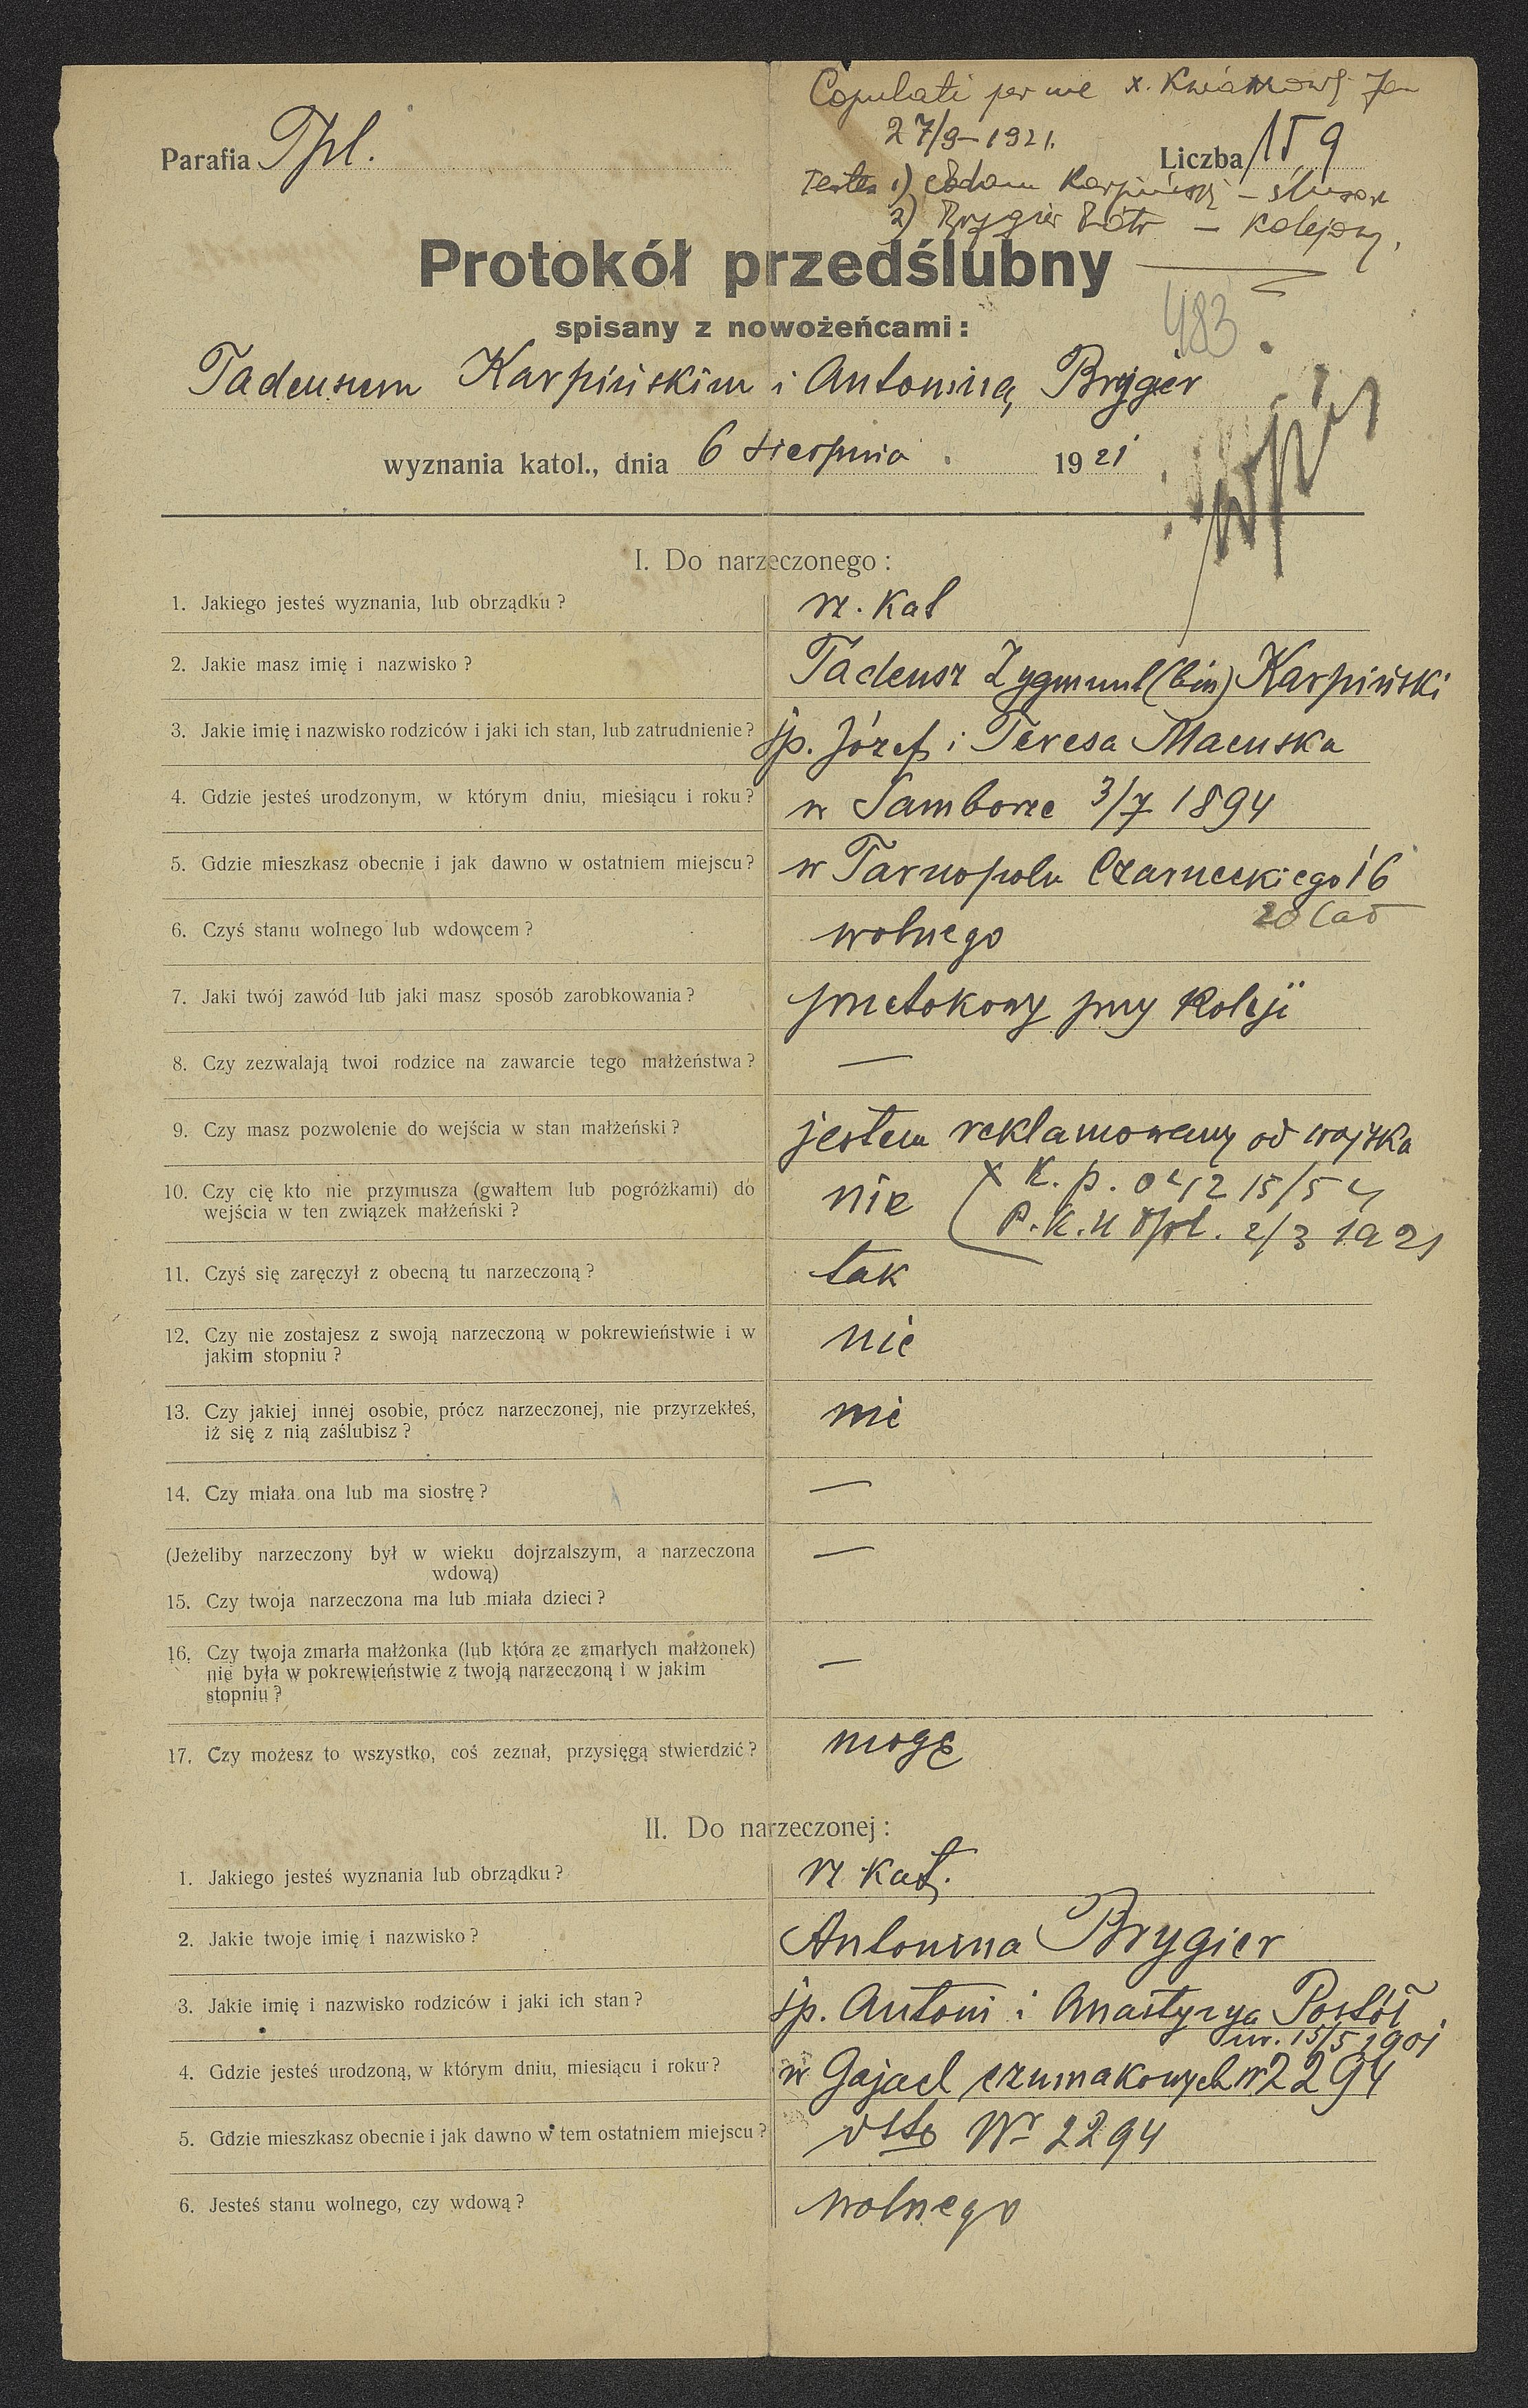 Copulati per me x. Kwiatkowski Jan
27/9 – 1921.
Parafia Tpl.
Liczba 159
Testes 1) Adam Karpiński – ślusarz
2) Brygier Piotr – kolejowy.
Protokół przedślubny
483
spisany z nowożeńcami:
Tadeuszem Karpińskim i Antoniną Brygier
wyznania katol., dnia 6 sierpnia 1921
I. Do narzeczonego:
1. Jakiego jesteś wyznania, lub obrządku? rz. kat
2. Jakie masz imię i nazwisko? Tadeusz Zygmunt (bin) Karpiński
3. Jakie imię i nazwisko rodziców i jaki ich stan, lub zatrudnienie? śp. Józef i Teresa
4. Gdzie jesteś urodzonym, w którym dniu, miesiącu i roku? w Samborze 3/7 1894
5. Gdzie mieszkasz obecnie i jak dawno w ostatniem miejscu? w Tarnopolu Czarneckiego 16
20 lat
6. Czyś stanu wolnego lub wdowcem? wolnego
7. Jaki twój zawód lub jaki masz sposób zarobkowania? przetokowy przy Koleji
8. Czy zezwalają twoi rodzice na zawarcie tego małżeństwa? —
9. Czy masz pozwolenie do wejścia w stan małżeński? jestem reklamowany od wojska
10. Czy cię kto nie przymusza (gwałtem lub pogróżkami) do nie
wejścia w ten związek małżeński?
P.K.U Tpl. 2/3 1921
11. Czyś się zaręczył z obecną tu narzeczoną? tak
12. Czy nie zostajesz z swoją narzeczoną w pokrewieństwie i w nie
jakim stopniu?
13. Czy jakiej innej osobie, prócz narzeczonej, nie przyrzekłeś, nie
iż się z nią zaślubisz?
14. Czy miała ona lub ma siostrę? —
(Jeżeliby narzeczony był w wieku dojrzalszym, a narzeczona —
wdową)
15. Czy twoja narzeczona ma lub miała dzieci?
16. Czy twoja zmarła małżonka (lub która ze zmarłych małżonek)
nie była w pokrewieństwie z twoją narzeczoną i w jakim —
stopniu?
17. Czy możesz to wszystko, coś zeznał, przysięgą stwierdzić? mogę
II. Do narzeczonej:
1. Jakiego jesteś wyznania lub obrządku? rz kat.
2. Jakie twoje imię i nazwisko? Antonina Brygier
3. Jakie imię i nazwisko rodziców i jaki ich stan? śp. Antoni i Anastyzya Postół
ur. 15/5 1901
4. Gdzie jesteś urodzoną, w którym dniu, miesiącu i roku? w Gajach czumakowych nr 2294
5. Gdzie mieszkasz obecnie i jak dawno w tem ostatniem miejscu? dtto Nr 2294
6. Jesteś stanu wolnego, czy wdową? wolnego